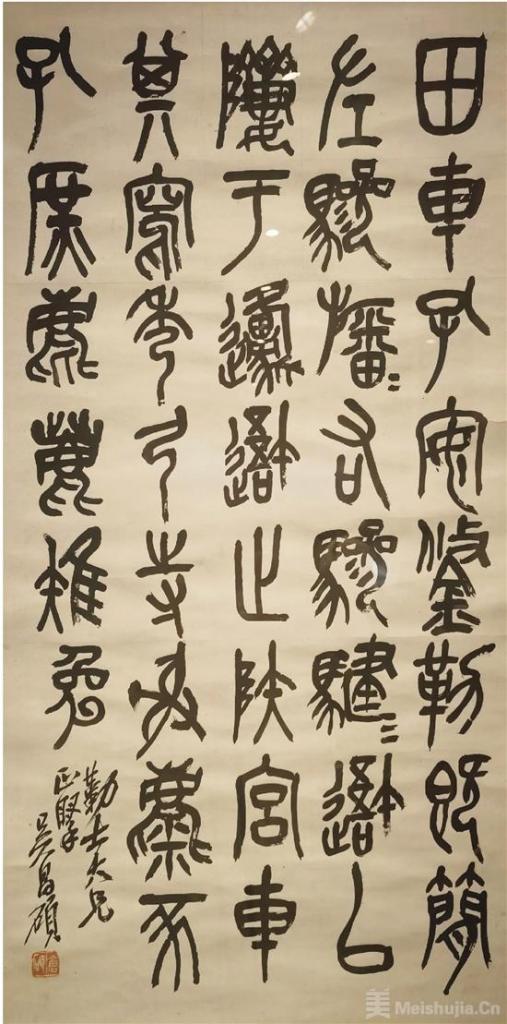 田車孔安鋚勒既簡
左驂旛=右驂騝=䢒以
隮于邍䢒止陝宮車
其寫秀弓寺射麋豕
孔庶麀鹿雉兔
勤士大兄
正腕
吳昌碩
美 Meishujia.Cn